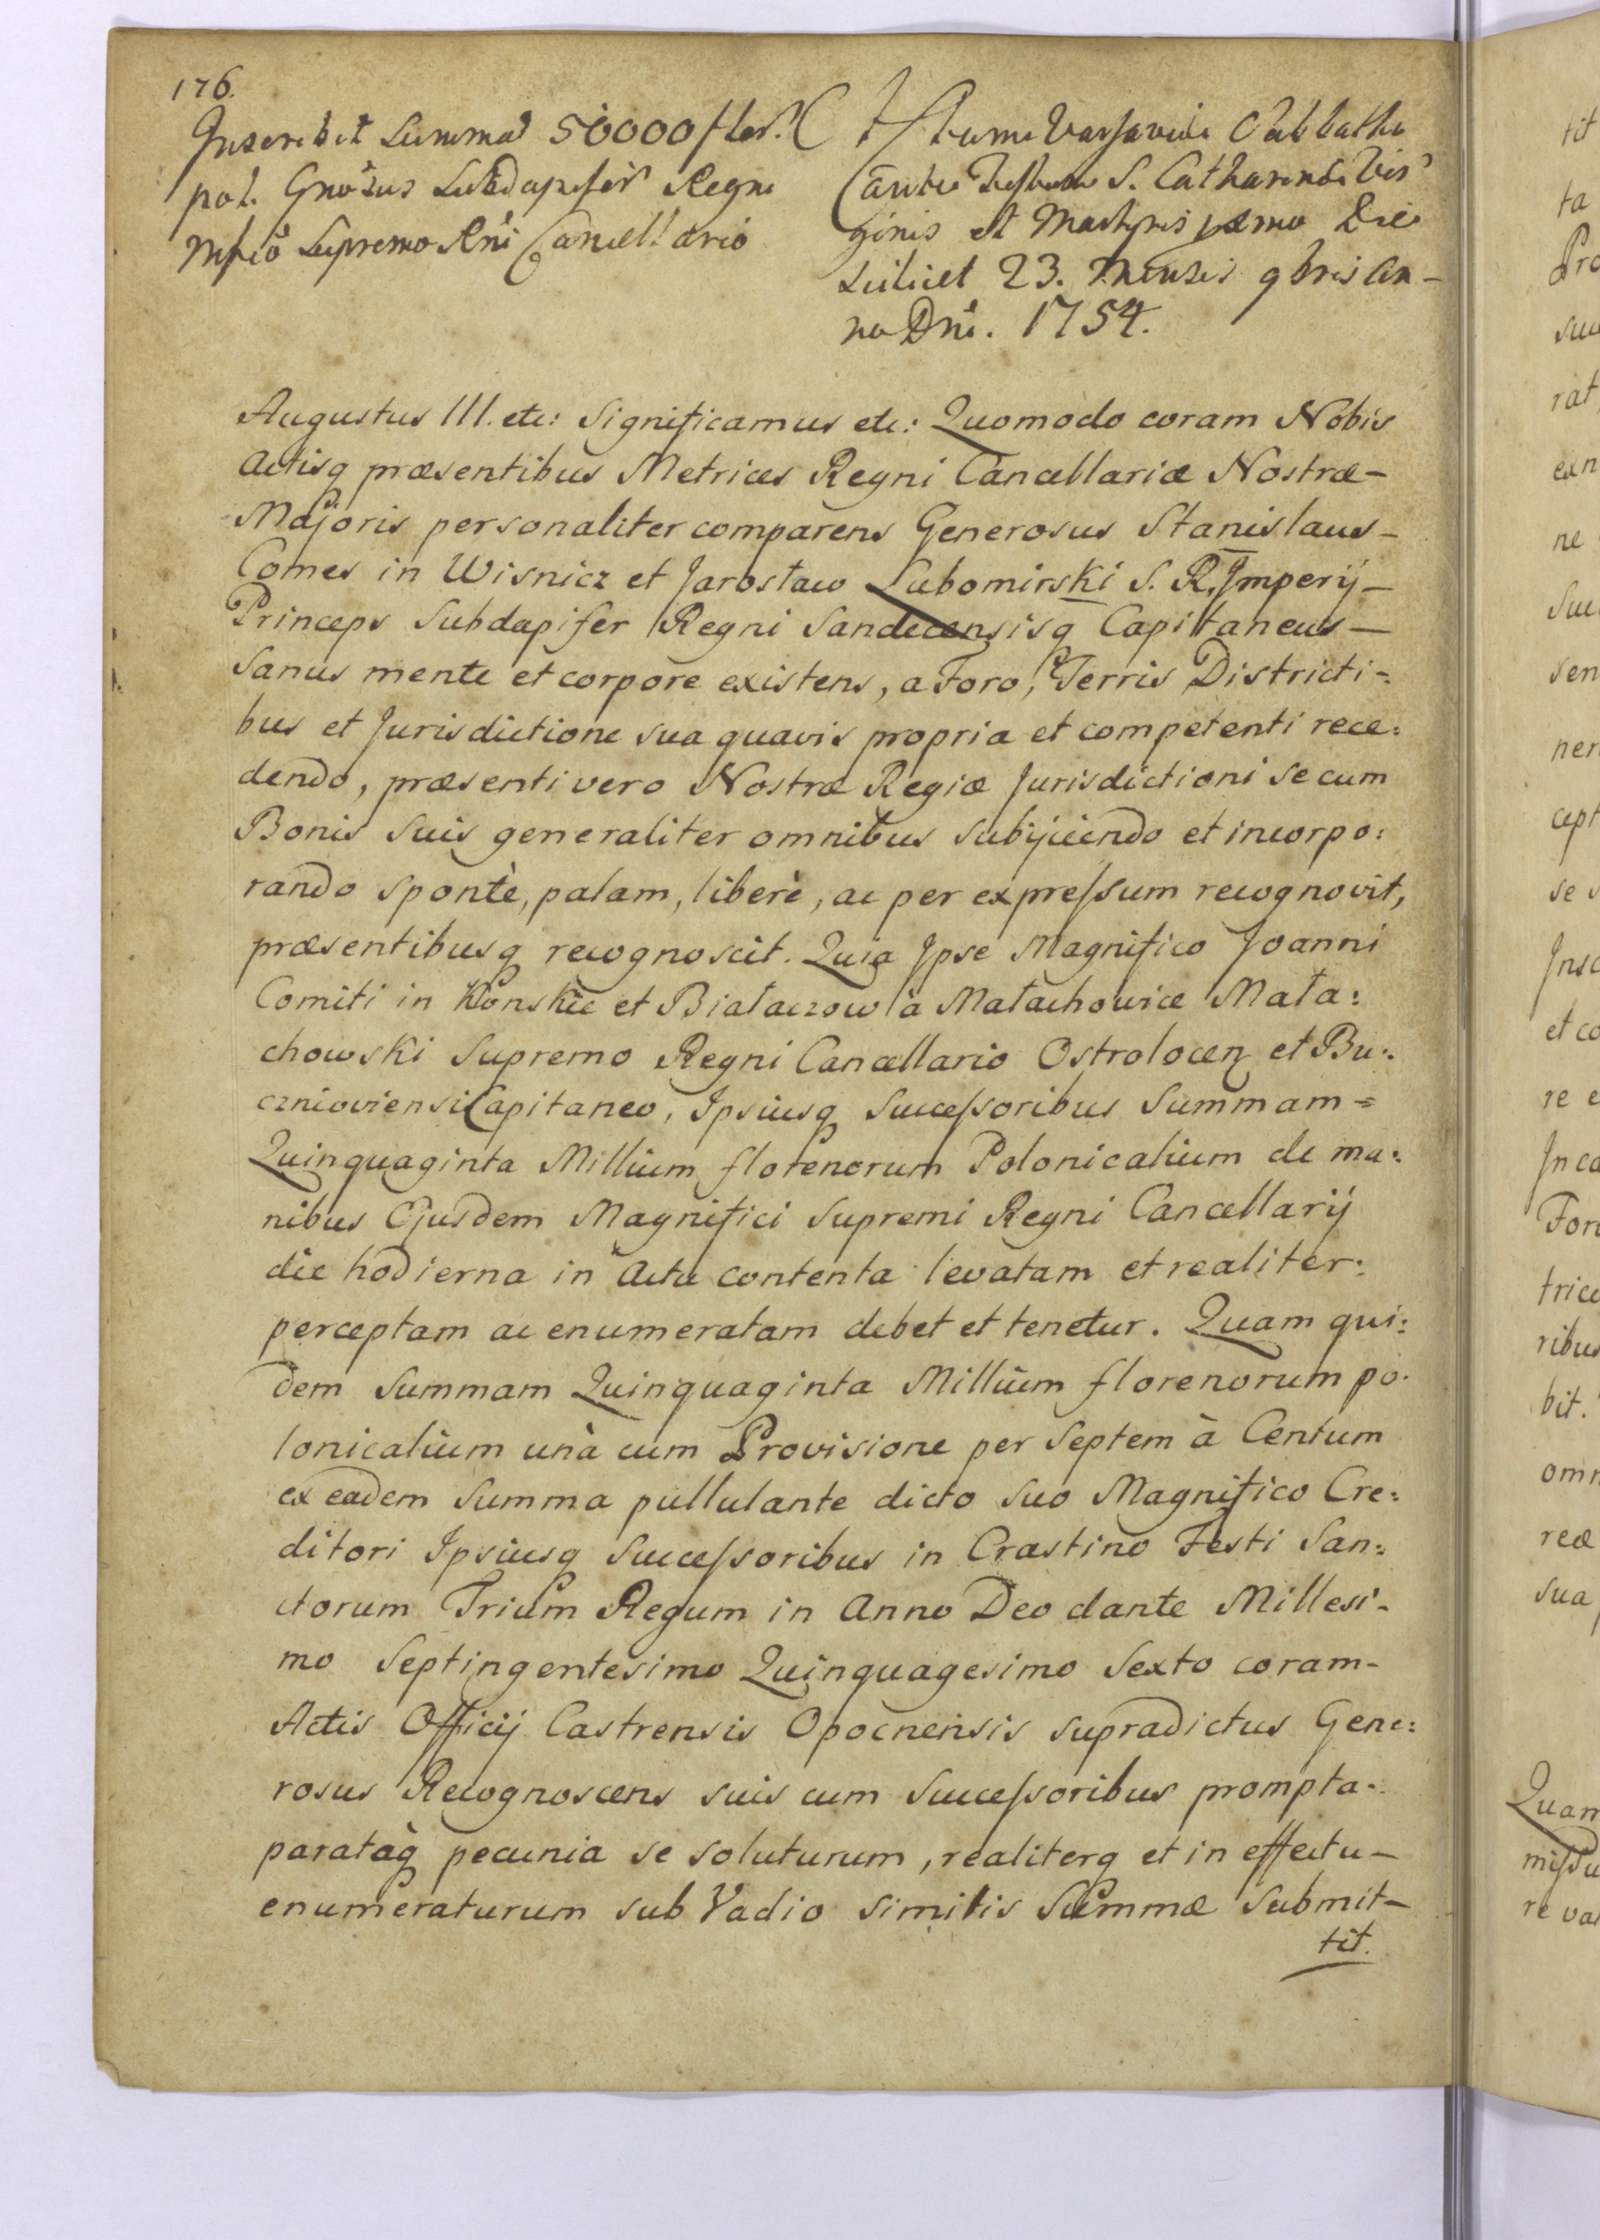 176.
Inscribit Summã 50000 flor.
pol. Gnosus Subdapifer Regni
Mfco Supremo Rni Cancellario
Actum Varsaviæ Sabbatho
ante Festum S. Catharinæ Vir
ginis et Martyris pmo Die
scilicet 23. Mensis 9bris An-
no Dni. 1754.
Augustus III. etc: Significamus etc: Quomodo coram Nobis
Actisq præsentibus Metrices Regni Cancellariæ Nostræ-
Majoris personaliter comparens Generosus Stanislaus-
Comes in Wisnicz et Jarosław Lubomirski S. R. Imperij-
Princeps Subdapifer Regni Sandecensisq Capitaneus-
Sanus mente et corpore existens, a Foro, Terris Districti-
bus et Jurisdictione sua quavis propria et competenti rece:
dendo, præsenti vero Nostræ Regiæ Jurisdictioni se cum
Bonis suis generaliter omnibus subijciendo et incorpo:
rando spontè, palam, liberè, ac per expressum recognovit,
præsentibusq recognoscit. Quia Ipse Magnifico Joanni
Comiti in Konskie et Białaczow à Małachowice Mała:
chowski Supremo Regni Cancellario Ostrolocen et Bu:
cznioviensi Capitaneo, Ipsiusq Successoribus Summam=
Quinquaginta Millium florenorum Polonicalium de ma:
nibus Ejusdem Magnifici Supremi Regni Cancellarij
die hodierna in Actu contenta levatam et realiter:
perceptam ac enumeratam debet et tenetur. Quam qui:
dem Summam Quinquaginta Millium florenorum po:
lonicalium unà cum Provisione per Septem à Centum
ex eadem Summa pullulante dicto suo Magnifico Cre:
ditori Ipsiusq Successoribus in Crastino Festi San:
ctorum Trium Regum in Anno Deo dante Millesi-
mo Septingentesimo Quinquagesimo Sexto coram-
Actis Officij Castrensis Opocnensis supradictus Gene:
rosus Recognoscens suis cum Successoribus prompta-
paratàq pecunia se soluturum, realiterq et in effectu-
enumeraturum sub Vadio similis Summæ Submit-
tit.